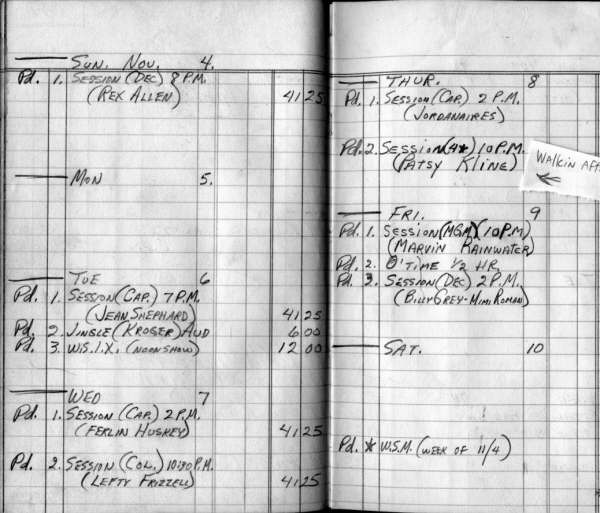 SUN. NOV. 4.
Pd. 1. SESSION (DEC) 8 P.M.
(REX ALLEN) 41 25
MON 5.
TUE 6
Pd. 1. SESSION (CAP.) 7 P.M.
(JEAN SHEPHARD) 41 25
Pd. 2. JINGLE (KROGER) AUD 6 00
Pd. 3. W.S.I.X. (NOON SHOW) 12 00
WED 7
Pd. 1. SESSION (CAP.) 2 P.M.
(FERLIN HUSKEY) 41 25
Pd. 2. SESSION (COL.) 10:30 P.M.
(LEFTY FRIZZELL) 41 25
THUR. 8
Pd. 1. SESSION (CAP.) 2 P.M.
(JORDANAIRES)
Pd. 2. SESSION (4★) 10 P.M.
(PATSY KLINE)
WALKIN AFT
←
FRI. 9
Pd. 1. SESSION (MGM) (10 P.M)
(MARVIN RAINWATER)
Pd. 2. O'TIME 1/2 HR.
Pd. 3. SESSION (DEC) 2 P.M.
(BILLY GREY-MIMI ROMAN)
SAT. 10
Pd. ★ W.S.M. (WEEK OF 11/4)